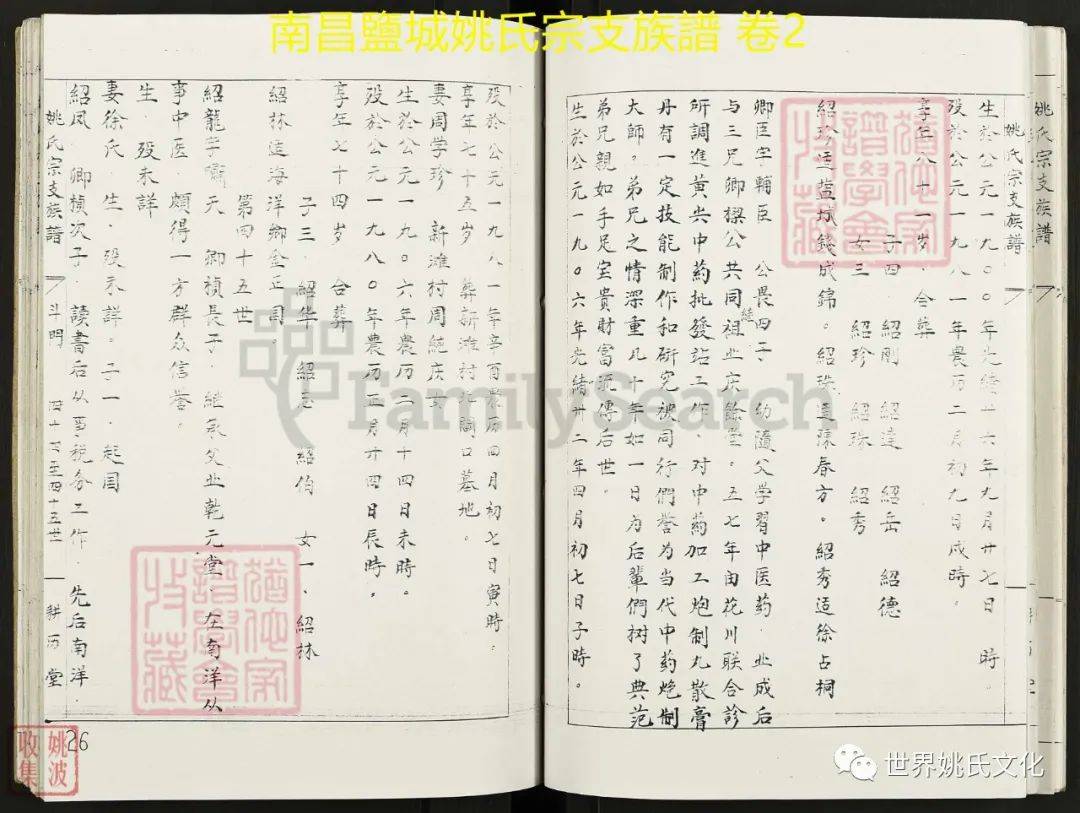 南昌鹽城姚氏宗支族譜 卷2
姚氏宗支族譜
姚氏宗支族譜
生於公元一九〇〇年光緒廿六年九月廿七日 時。
殁於公元一九八一年農历二月初九日戍時。
享年八十一岁。合葬
子四 紹剛 紹達 紹岳 紹德
女三 紹珍 紹珠 紹秀
紹珍适盐城錢成錦。紹珠适陳春方。紹秀适徐占桐
卿臣字輔臣 公畏四子 幼隨父学習中医葯。业成后
与三兄卿樑公共同継祖业庆餘堂。五七年由花川联合診
所調進黄尖中葯批發站工作。对中葯加工炮制丸散膏
丹有一定技能制作和研究被同行們誉为当代中葯炮制
大師。弟兄之情深重几十年如一日为后輩們树了典范
弟兄親如手足宝貴財富流傳后世。
生於公元一九〇六年光緒廿二年四月初七日子時。
殁於公元一九八一年辛酉農历四月初七日寅時。
享年七十五岁 葬新滩村 闸口墓地。
妻周学珍 新滩村周統庆女
生於公元一九〇六年農历 月十四日未時。
殁於公元一九八〇年農历正月廿四日辰時。
享年七十四岁 合葬
子三 紹华 紹忠 紹伯 女一、紹林
紹林适海洋鄉金正同。
第四十五世
紹龍字嘯天 卿禎長子 継承父业乾元堂。在南洋从
事中医 頗得一方群众信誉。
生 殁未詳
妻徐氏 生、殁未詳。子一、起国
紹凤 卿楨次子 讀書后从事税务工作 先后南洋
姚氏宗支族譜
斗門
四十四至四十五世
耕历堂
26
姚波
收集
譜學會
收藏
譜學會
收藏
FamilySearch
世界姚氏文化